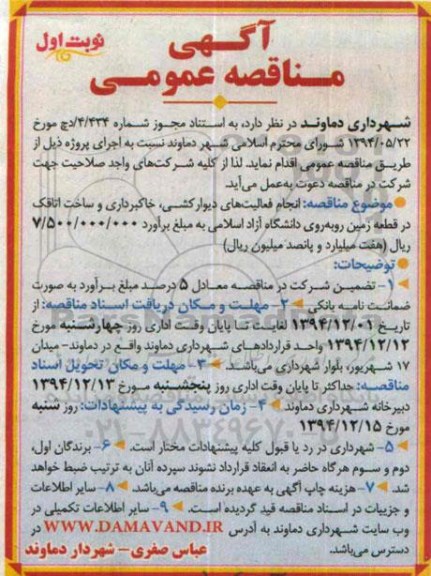 آگهی
نوبت اول
مناقصه عمومی
شهرداری دماوند در نظر دارد، به استناد مجوز شماره ۴/۴۳۴/دچ مورخ
۱۳۹۴/۰۵/۲۲ شورای محترم اسلامی شهر دماوند نسبت به اجرای پروژه ذیل از
طریق مناقصه عمومی اقدام نماید. لذا از کلیه شرکت‌های واجد صلاحیت جهت
شرکت در مناقصه دعوت به‌عمل می‌آید.
موضوع مناقصه: انجام فعالیت‌های دیوارکشی، خاکبرداری و ساخت اتاقک
در قطعه زمین روبه‌روی دانشگاه آزاد اسلامی به مبلغ برآورد ۷/۵۰۰/۰۰۰/۰۰۰
ریال (هفت میلیارد و پانصد میلیون ریال)
توضیحات:
۱- تضمین شرکت در مناقصه معادل ۵ درصد مبلغ برآورد به صورت
ضمانت نامه بانکی ۲- مهلت و مکان دریافت اسناد مناقصه: از
تاریخ ۱۳۹۴/۱۲/۰۱ لغایت تا پایان وقت اداری روز چهارشنبه مورخ
۱۳۹۴/۱۲/۱۲ واحد قراردادهای شهرداری دماوند واقع در دماوند- میدان
۱۷ شهریور، بلوار شهرداری می‌باشد. ۳- مهلت و مکان تحویل اسناد
مناقصه: حداکثر تا پایان وقت اداری روز پنجشنبه مورخ ۱۳۹۴/۱۲/۱۳
دبیرخانه شهرداری دماوند ۴- زمان رسیدگی به پیشنهادات: روز شنبه
مورخ ۱۳۹۴/۱۲/۱۵
۵- شهرداری در رد یا قبول کلیه پیشنهادات مختار است. ۶- برندگان اول،
دوم و سوم هرگاه حاضر به انعقاد قرارداد نشوند سپرده آنان به ترتیب ضبط خواهد
شد. ۷- هزینه چاپ آگهی به عهده برنده مناقصه می‌باشد. ۸- سایر اطلاعات
و جزییات در اسناد مناقصه قید گردیده است. ۹- سایر اطلاعات تکمیلی در
وب سایت شهرداری دماوند به آدرس WWW.DAMAVAND.IR در
دسترس می‌باشد.
عباس صفری- شهردار دماوند
۰۲۱-۸۸۳۴۹۶۷۰